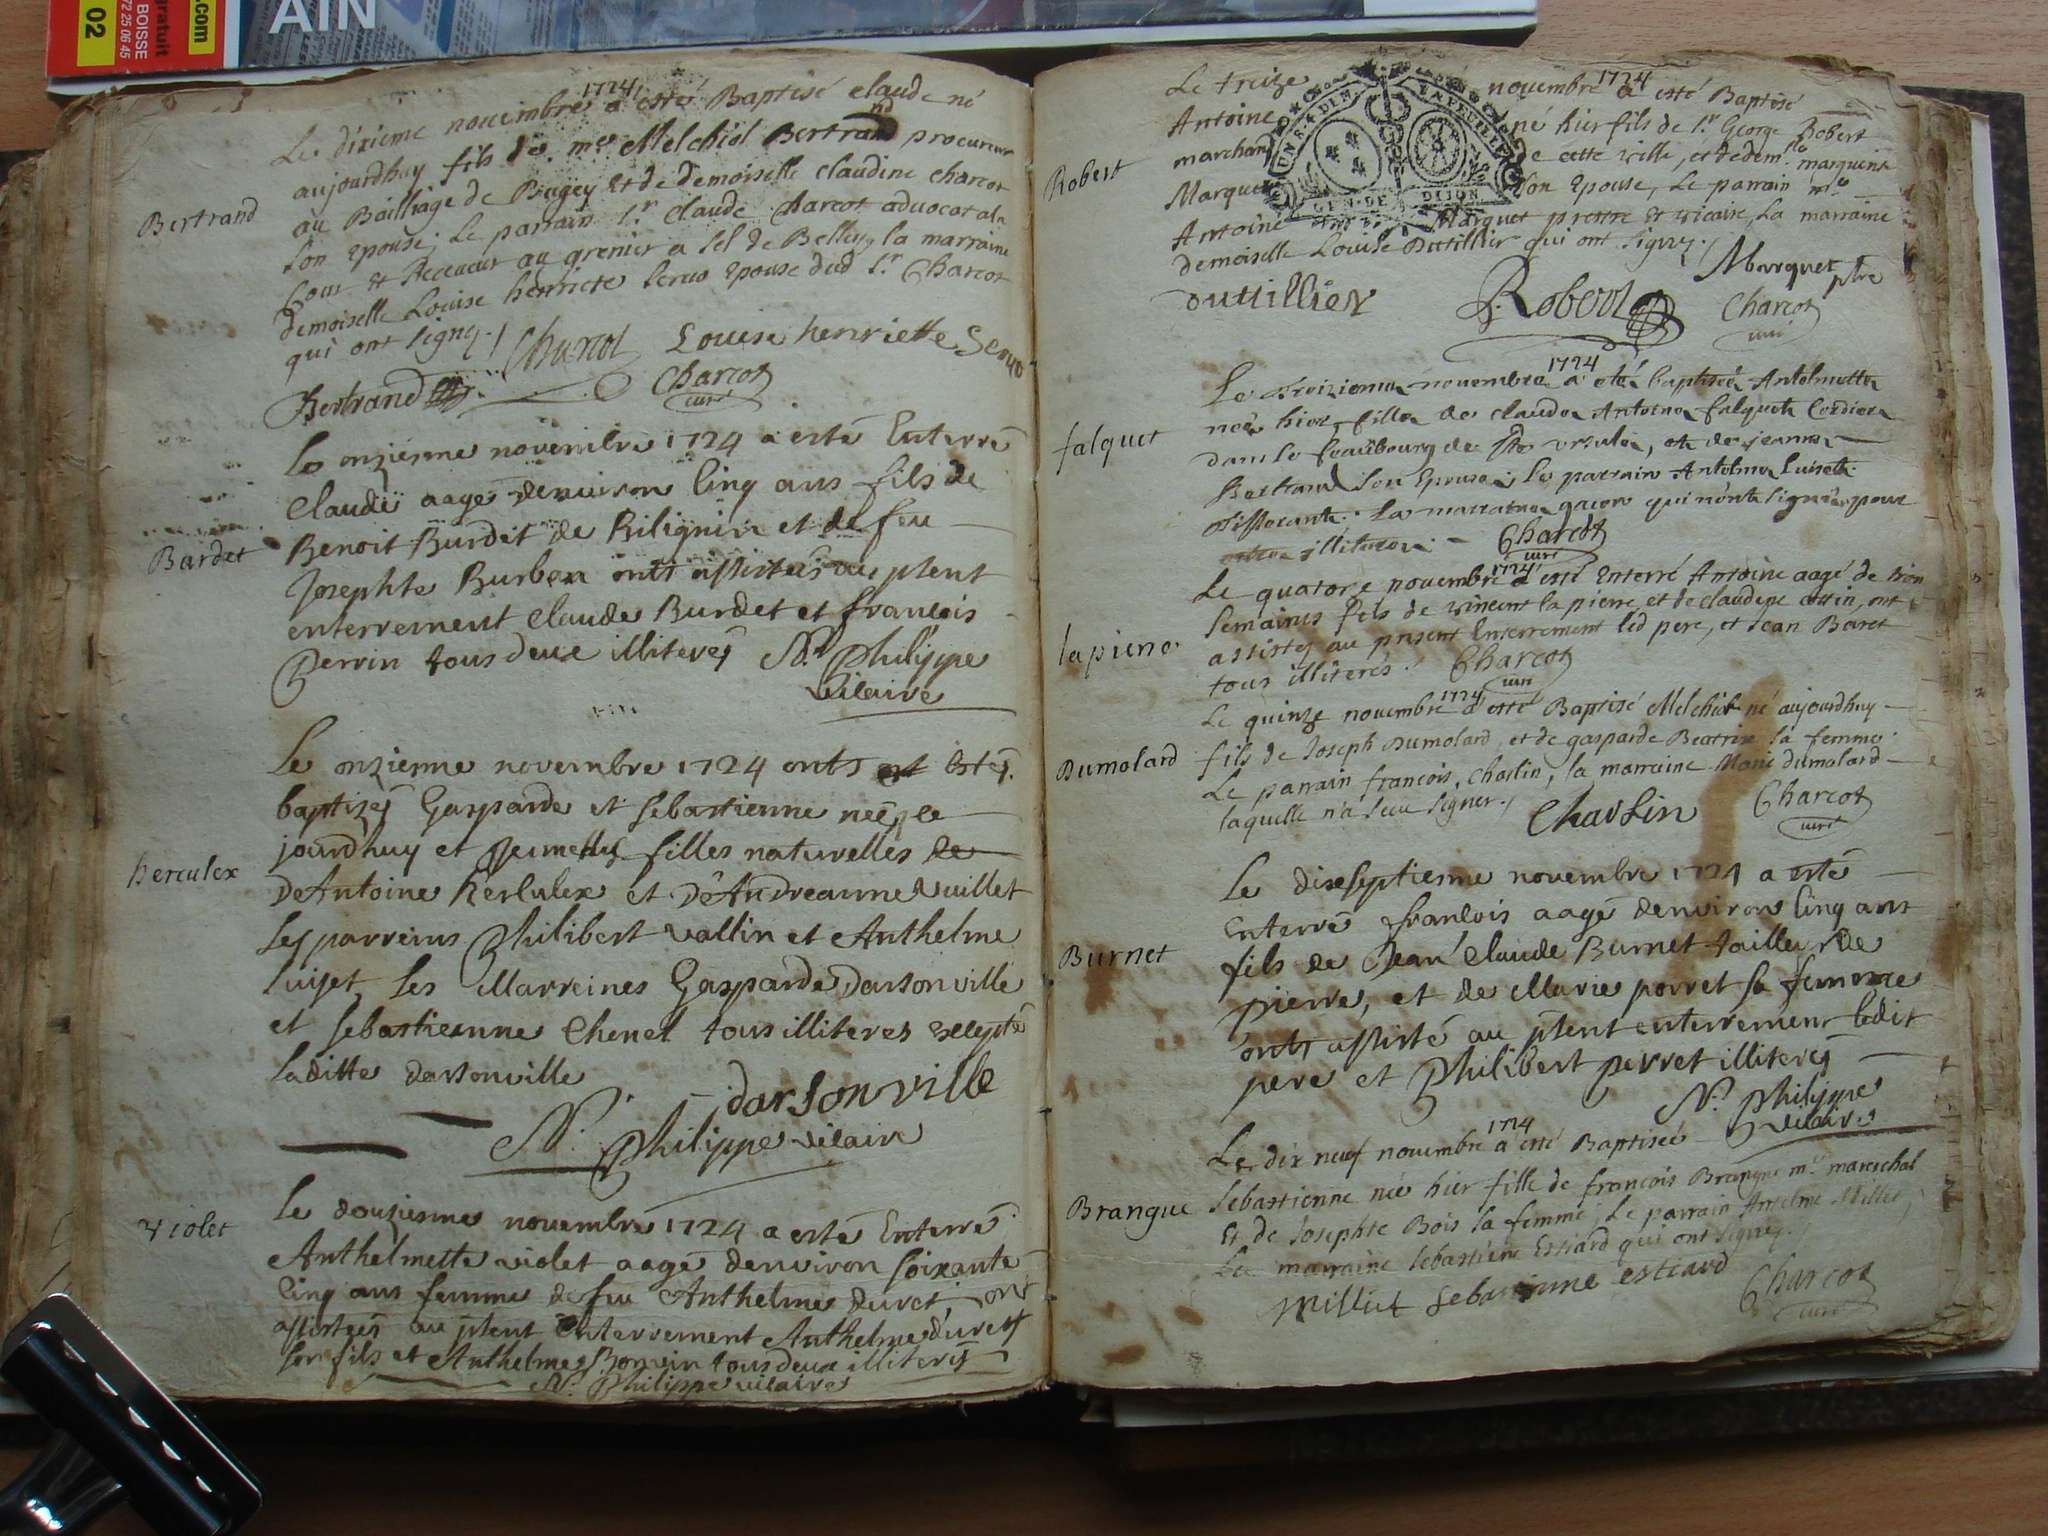 .com
gratuit
BOISSE
72 25 06 45
02
AIN
1724
Le dixieme novembre a esté Baptisé claude né
aujourdhuy fils de me Melchiol Bertrand procureur
Bertrand
au Bailliage de Bugey et de demoiselle claudine charcot
son epouse; Le parrain sr claude Charcot advocat a la
Cour et Receveur au grenier a sel de Belley, la marraine
demoiselle Louise henriete servo epouse dud sr Charcot
qui ont signez.
Charcot Louise henriette Servo
Bertrand
Charcot
curé
Le onziesme novembre 1724 a esté Enterré
Claude aagé denviron cinq ans fils de
Bardet
Benoit Burdet de Rilignin et de feu
Josephte Burben onts assistés au pſent
enterrement Claude Burdet et francois
Perrin tous deux illiterés N. Philippe
vicaire
Le onzienne novembre 1724 onts estés
baptizés Gasparde et sebastienne neés ce
jourdhuy et Jumelles filles naturelles de
herculex
De Antoine herculex et D'Andreanne Vuillet
Les parreins Philibert vallin et Anthelme
luiset Les Marreines Gasparde Darsonville
et sebastienne Chenel tous illiteres excepté
laditte darsonville
darsonville
N. Philippe vicaire
violet
Le douziesme novembre 1724 a esté Enterré
Anthelmette violet aagé denviron soixante
cinq ans femme de feu Anthelme duret, ont
assistés au pſent enterrement Anthelme duret
son fils et Anthelme Bonvin tous deux illiterés
N. Philippe vicaire
Le treize novembre 1724 a esté Baptisé
Antoine né hier fils de sr George Robert
Robert
marchand de cette ville, et de demlle marquise
Marquet son epouse, Le parrain me
Antoine Marquet prestre et vicaire, La marraine
demoiselle Louise Dutillier qui ont signez.
GEN·DE DIJON
Marquet ptre
dutillier Robert Charcot
curé
1724
Le troizieme novembre a eté baptisée Antelmette
née hier, fille de claude Antoine falquet Cordier
falquet
dans le feaubourg de ste ursule, et de jeanne
Bertrand son Epouse Le parrain Antelme Luiset
La marraine qui n'ont signé pour
estre illiteré
Charcot
curé
1724
Le quatorze novembre a esté Enterré Antoine aagé de trois
semaines fils de vincent la pierre et de claudine ottin, ont
lapierre
assistez au present Enterrement led pere, et Jean Baret
tous illiterés. Charcot
curé
1724
Le quinze novembre a esté Baptisé Melchiol né aujourdhuy
Dumolard
fils de Joseph Dumolard, et de gasparde Beatrix sa femme
Le parrain francois Charlin, la marraine Marie dumolard
laquelle n'a sceu signer.
Charlin Charcot
curé
Le dixseptienne novembre 1724 a esté
Enterré francois aagé denviron cinq ans
Burnet
fils de Jean Claude Burnet tailleur de
pierre, et de Marie porret sa femme
onts assisté au pſent enterrement ledit
pere et Philibert perret illiterés
N. Philippe
vicaire
1724
Le dix neuf novembre a esté Baptisée
Sebastienne née hier fille de francois Brangue me mareschal
Brangue
Et de Josephte Bois sa femme, Le parrain Anselme Millet,
La marraine sebastiene Estiard qui ont signez.
Milliet Sebastienne estiard Charcot
curé